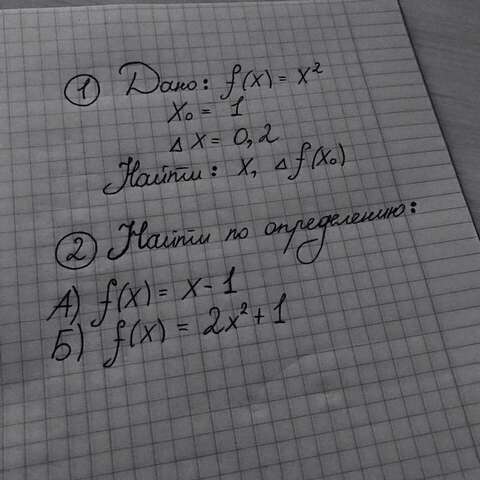 ① Дано: f(x) = x²
x₀ = 1
Δ x = 0,2
Найти: x, Δ f(x₀)
② Найти по определению:
А) f(x) = x - 1
Б) f(x) = 2x² + 1